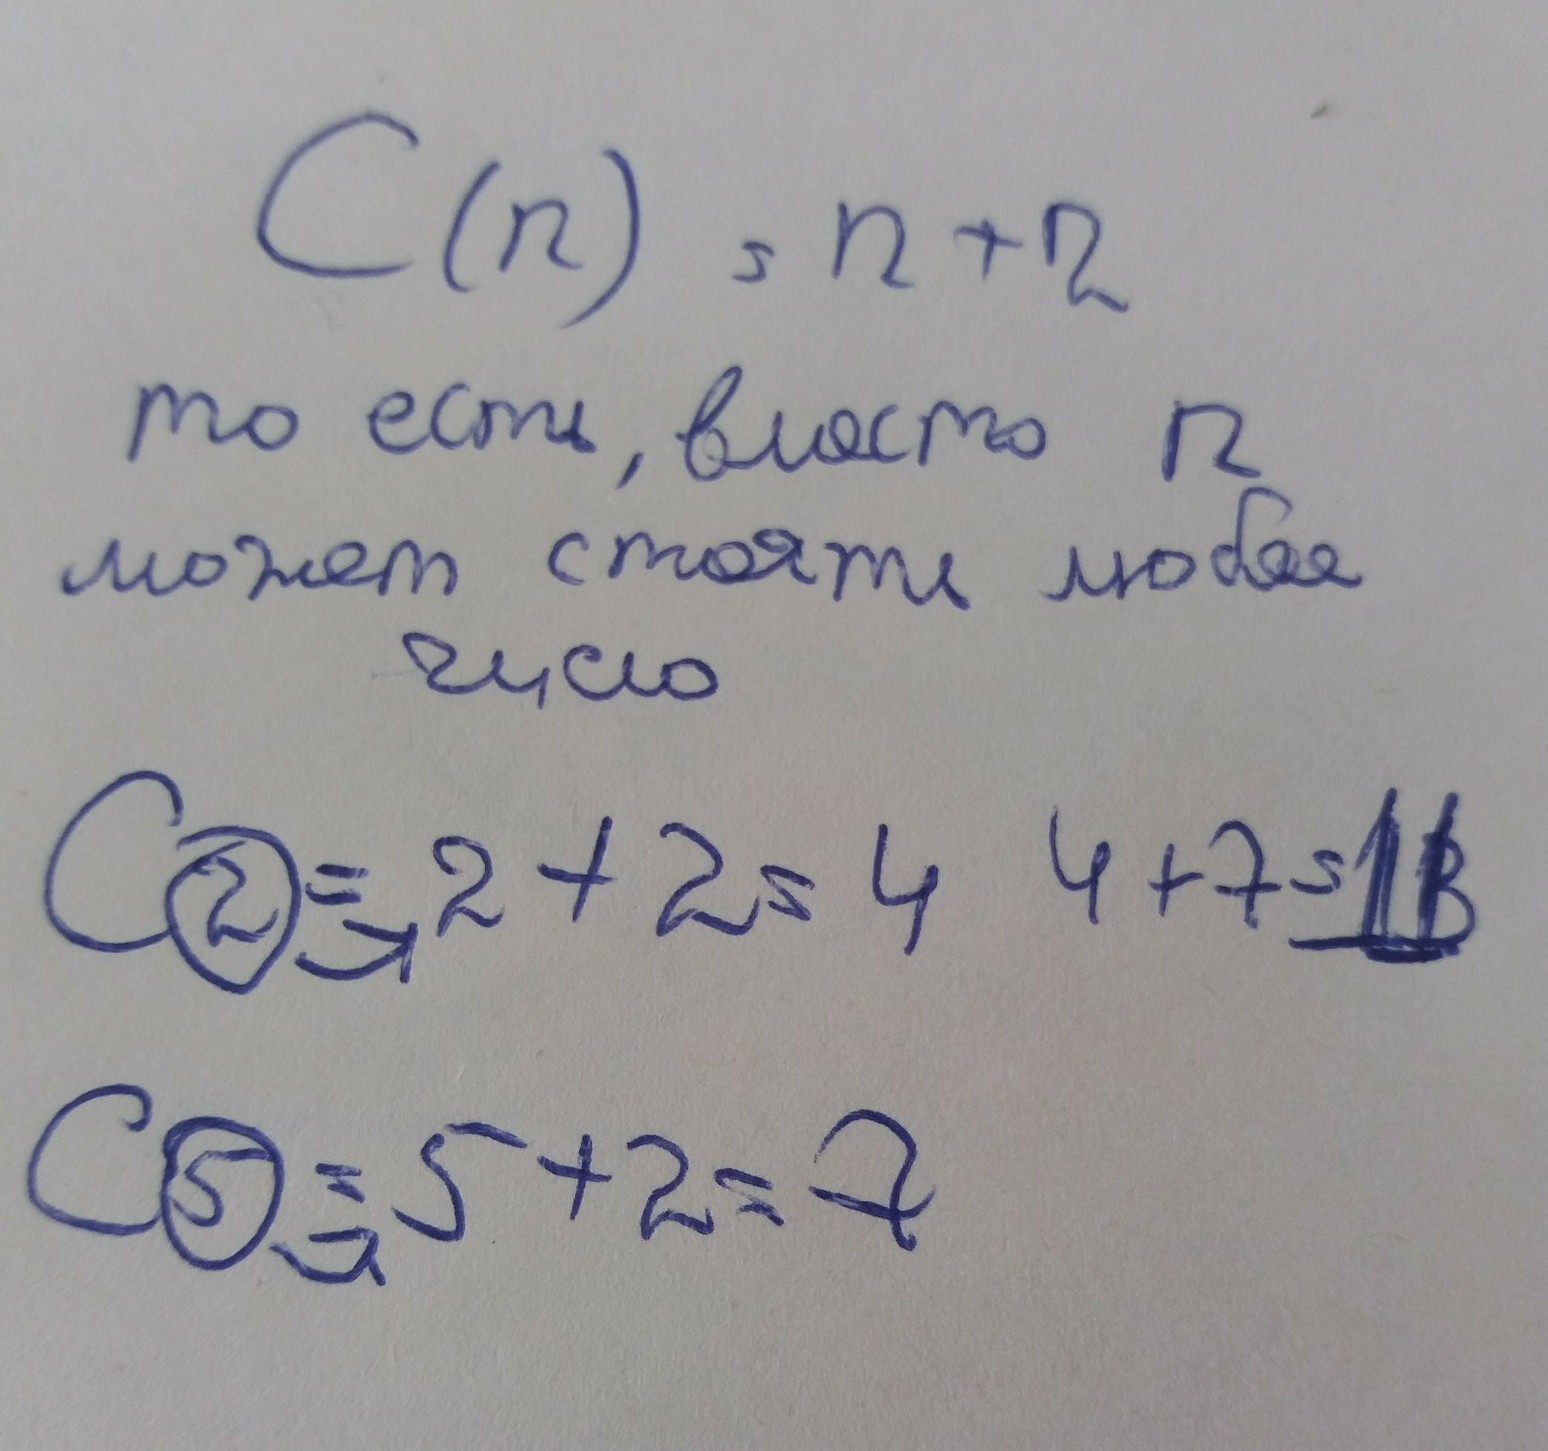 C(n) = n + n
то есть, вместо n
может стоять любое
число
C2 = 2 + 2 = 4 4 + 7 = 11
C5 = 5 + 2 = 7